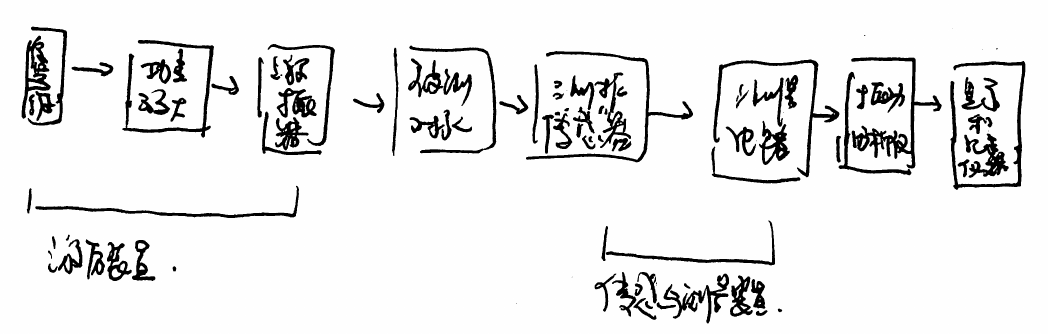 信号源
功率
放大
激振
器
被测
对象
测振
传感器
测量
电路
振动
分析仪
显示
和
记录
仪器
激励装置.
传感与测量装置.